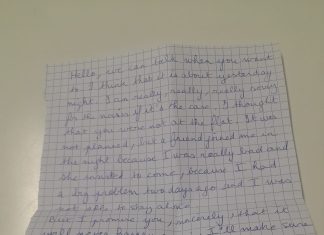 Hello, we can talk when you want
to. I think that it is about yesterday
night. I am really, really, really sorry
for the noises if it's the case. I thought
that you were not at the flat. It was
not planned, but a friend joined me in
the night because I was really bad and
she wanted to come, because I had
a big problem two days ago and I was
not able to stay alone.
But I promise you, sincerely, that it
will never
I'll make sure